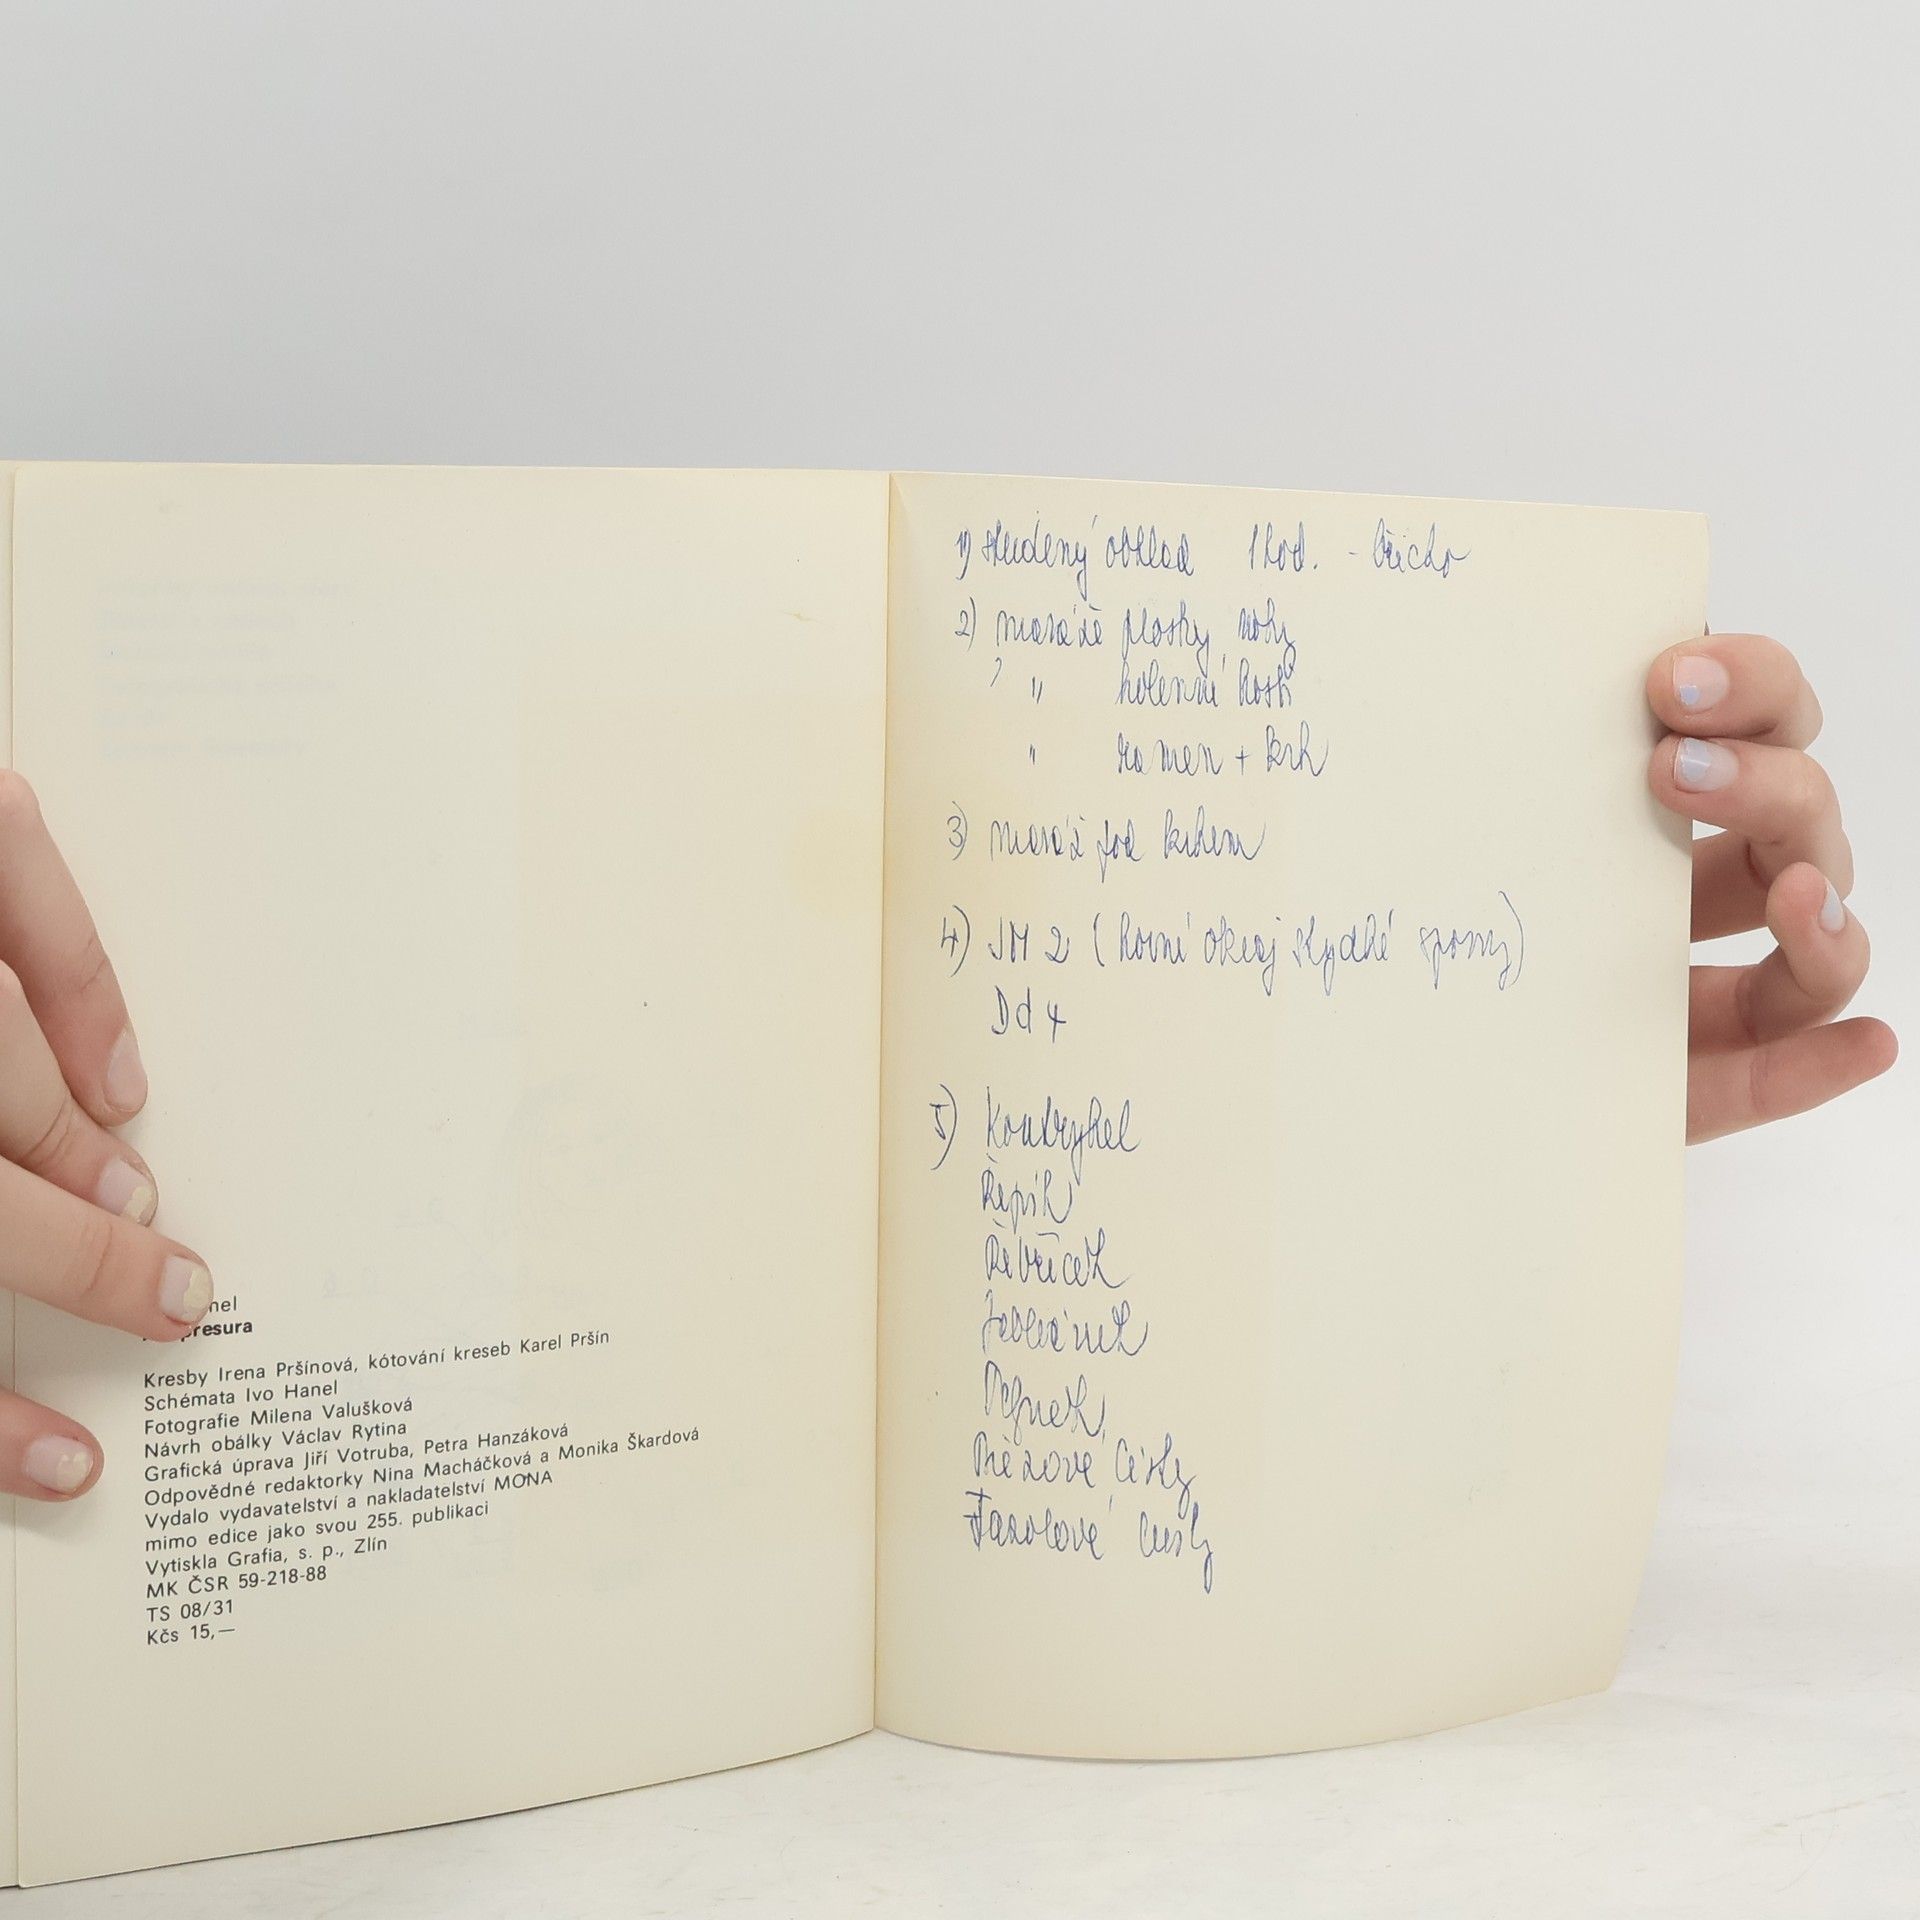 nel
presura
Kresby Irena Pršínová, kótování kreseb Karel Pršín
Schémata Ivo Hanel
Fotografie Milena Valušková
Návrh obálky Václav Rytina
Grafická úprava Jiří Votruba, Petra Hanzáková
Odpovědné redaktorky Nina Macháčková a Monika Škardová
Vydalo vydavatelství a nakladatelství MONA
mimo edice jako svou 255. publikaci
Vytiskla Grafia, s. p., Zlín
MK ČSR 59-218-88
TS 08/31
Kčs 15,—
1) studený obklad 1 hod. - břicho
2) masáže plosky nohy
" holenní kosti
" ramen + krh
3) masáž pod krkem
4) JM 2 (horní okraj stydké spony)
Dd 4
5) Kontryhel
Řepík
Řebříček
Jablečník
Březové listy
Fazolové lusky